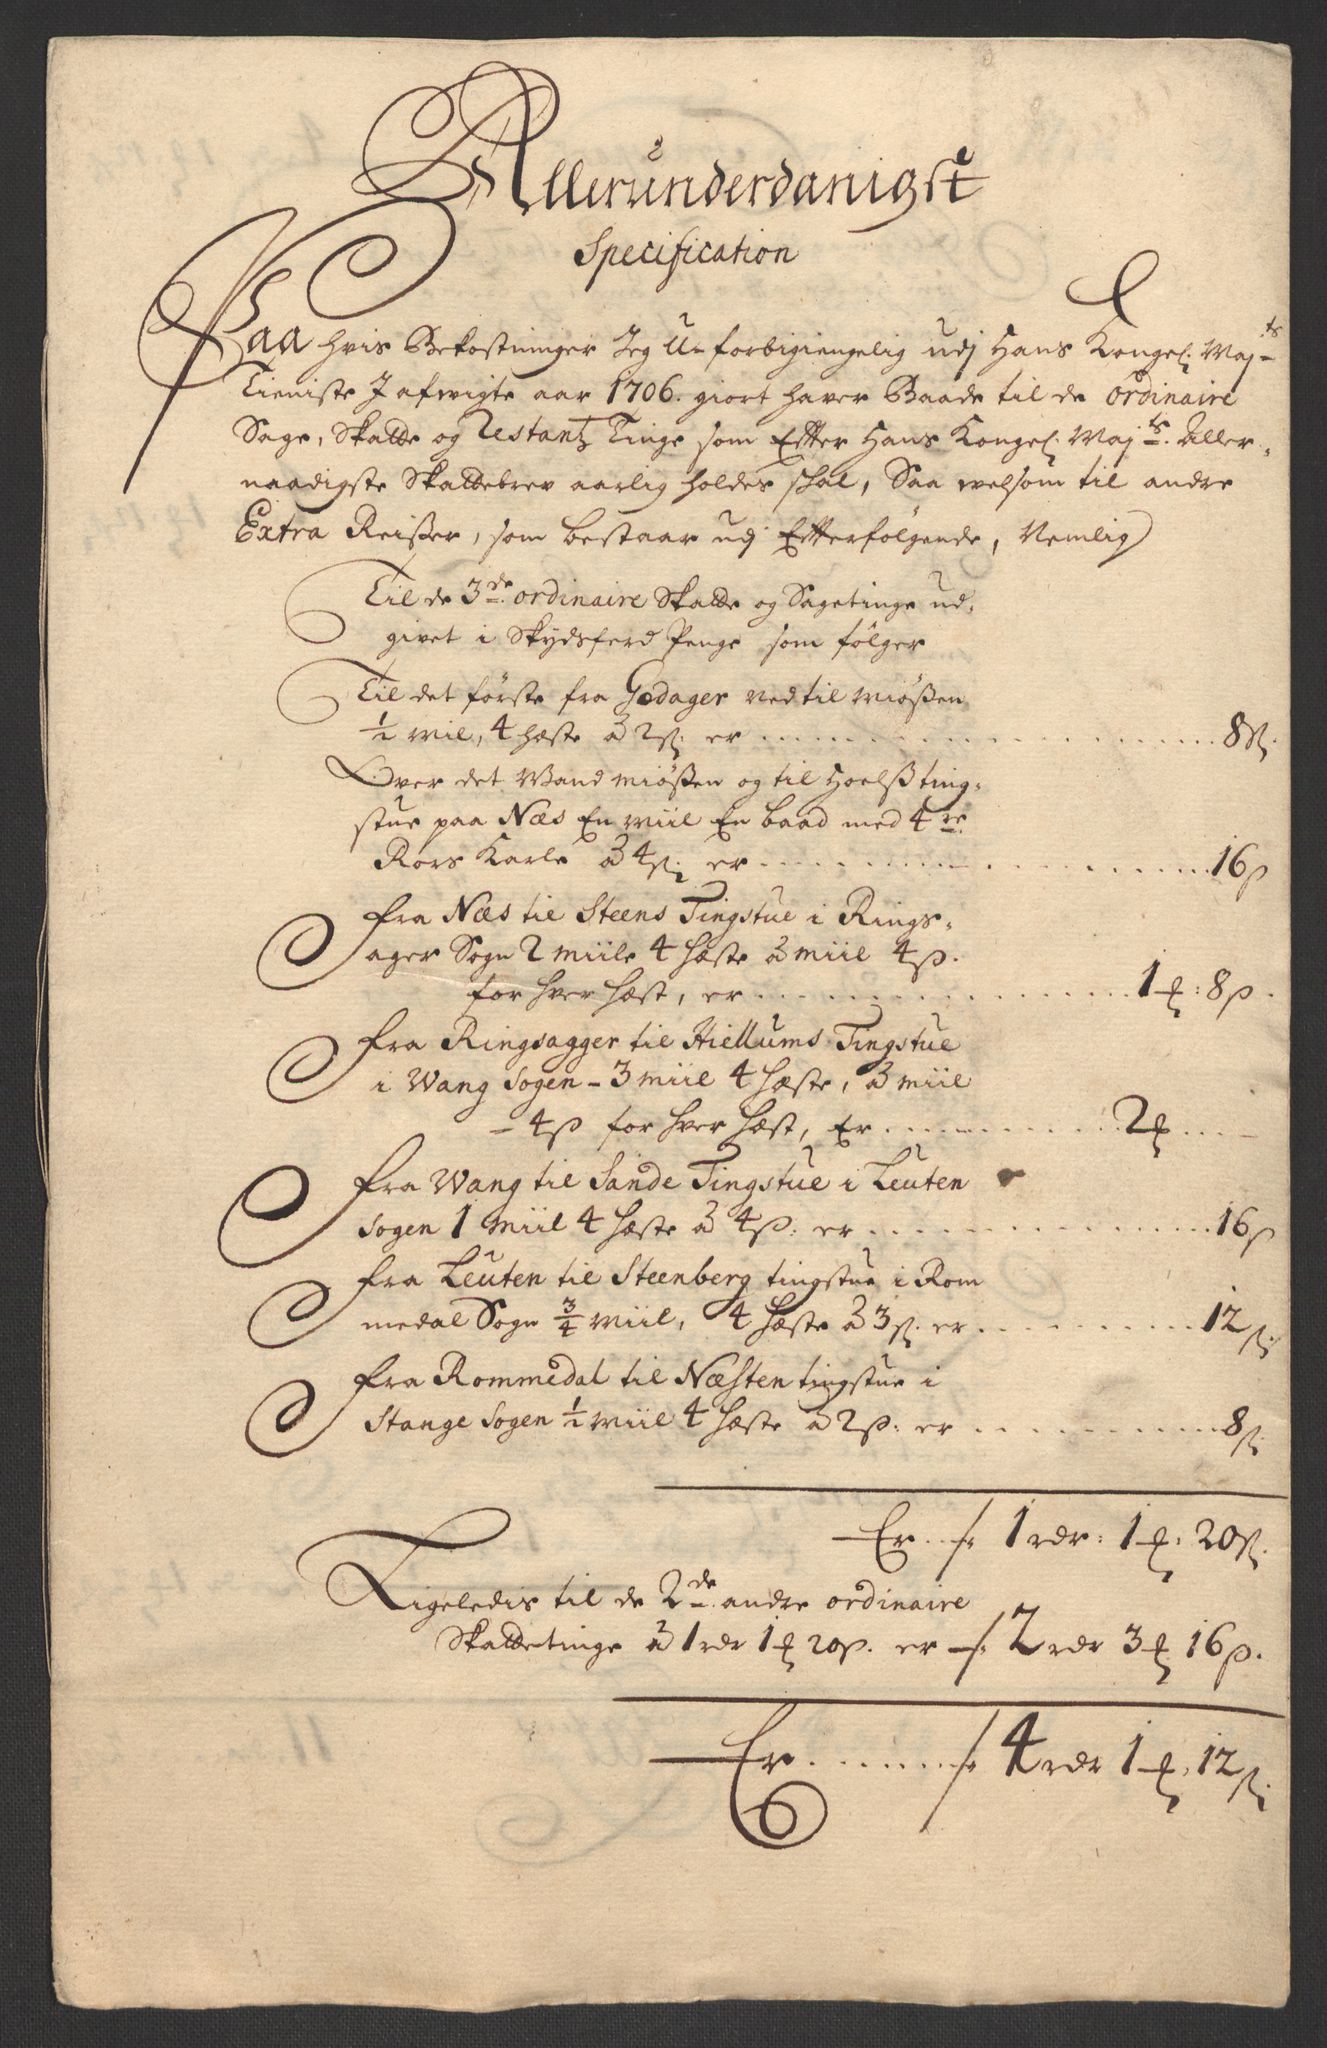 Allerunderdanigst
Specification
Paa hvis Bekostninger Jeg U-forbigiengelig udj Hans Kongel: Majts
Tieniste J afvigte aar 1706. giort haver Baade til de ordinaire
Sage, Skatte og Restantz Tinge som Efter Hans Kongel: Majts: Aller-
naadigste Skattebrev aarlig holdes skal, Saa velsom til andre
Extra Reisser, som bestaar udj Efterfølgende, Nemlig
Til de 3de ordinaire Skatte og Sagetinge ud-
givet i Skydsferd Penge som følger
Til det første fra Godager ned til Miøssen
½ Mil, 4 hæste à 2ß: er ..... 8ß:
Over det Vand Miøssen og til Hoelstting-
stue paa Næs En Miil En baad med 4re
Rors Karle à 4ß: er ..... 16ß
Fra Næs til Steens Tingstue i Rings-
ager Sogn 2 Miile 4 hæste à Miil 4ß.
for hver hæst, er ..... 1 ℔: 8ß.
Fra Ringsagger til Hiellums Tingstue
i Wang Sogen - 3 Miil 4 hæste, à Miil
- 4ß for hver hæst, Er ..... 2 ℔ -
Fra Wang til Sande Tingstue i Leuten
Sogen 1 Miil 4 hæste à 4ß: er ..... 16ß
Fra Leuten til Steenberg tingstue i Rom
medal Sogn ¾ Miil, 4 hæste à 3ß: er ..... 12ß:
Fra Rommedal til Næsten tingstue i
Stange Sogen ½ Miil 4 hæste à 2ß: er ..... 8ß:
Er ... 1 rdr: 1 ℔: 20ß:
Ligeledis til de 2de andre ordinaire
Skattetinge à 1 rdr 1 ℔ 20ß. er 2 rdr 3 ℔ 16ß.
Er ..... 4 rdr 1 ℔: 12ß: